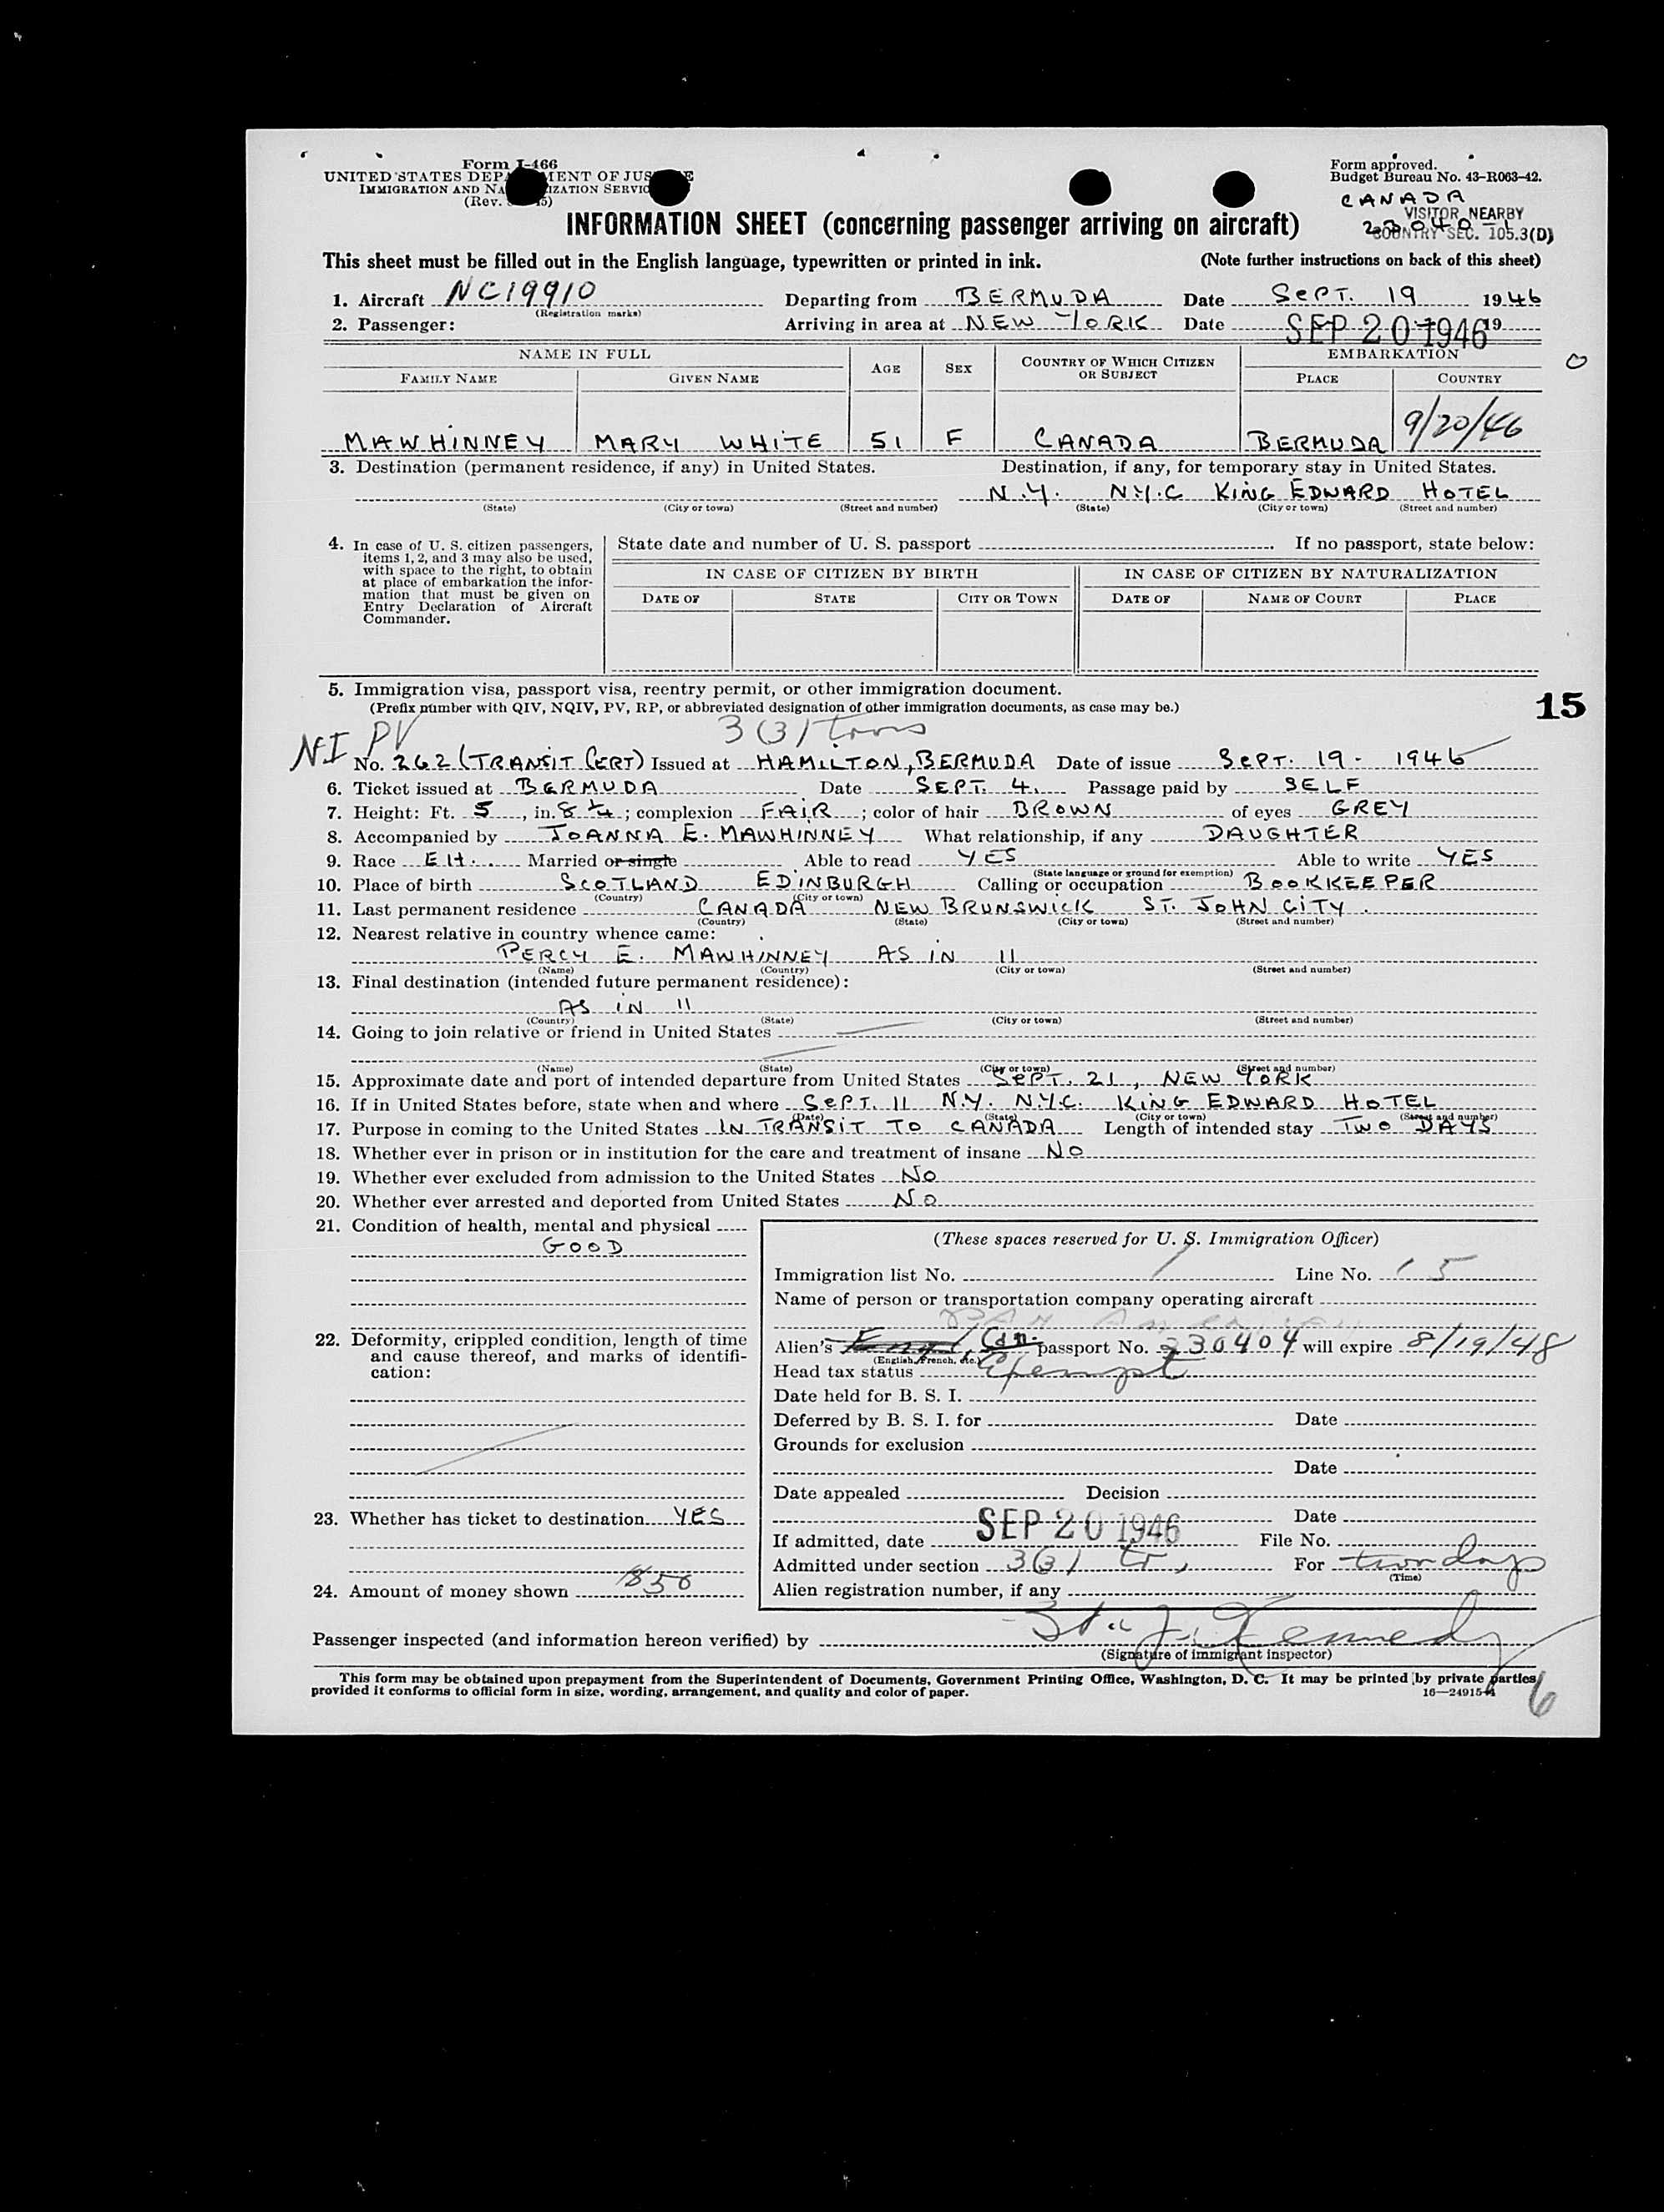 Form I-466
UNITED STATES DEPA MENT OF JUS E
IMMIGRATION AND NA IZATION SERVIC
(Rev. 5)
Form approved.
Budget Bureau No. 43-R063-42.
CANADA
VISITOR NEARBY
COUNTRY SEC. 105.3(D)
INFORMATION SHEET (concerning passenger arriving on aircraft)
This sheet must be filled out in the English language, typewritten or printed in ink. (Note further instructions on back of this sheet)
1. Aircraft NC19910 Departing from BERMUDA Date SEPT. 19 1946
(Registration marks)
2. Passenger: Arriving in area at NEW YORK Date SEP 20 1946 19
NAME IN FULL AGE SEX COUNTRY OF WHICH CITIZEN OR SUBJECT EMBARKATION
FAMILY NAME GIVEN NAME PLACE COUNTRY
0
9/20/46
MAWHINNEY MARY WHITE 51 F CANADA BERMUDA
3. Destination (permanent residence, if any) in United States. Destination, if any, for temporary stay in United States.
N.Y. N.Y.C KING EDWARD HOTEL
(State) (City or town) (Street and number) (State) (City or town) (Street and number)
4. In case of U. S. citizen passengers, items 1, 2, and 3 may also be used, with space to the right, to obtain at place of embarkation the information that must be given on Entry Declaration of Aircraft Commander.
State date and number of U. S. passport . If no passport, state below:
IN CASE OF CITIZEN BY BIRTH IN CASE OF CITIZEN BY NATURALIZATION
DATE OF STATE CITY OR TOWN DATE OF NAME OF COURT PLACE
5. Immigration visa, passport visa, reentry permit, or other immigration document.
(Prefix number with QIV, NQIV, PV, RP, or abbreviated designation of other immigration documents, as case may be.)
15
NI PV 3(3) trans
No. 262 (TRANSIT CERT) Issued at HAMILTON, BERMUDA Date of issue SEPT. 19 - 1946
6. Ticket issued at BERMUDA Date SEPT. 4. Passage paid by SELF
7. Height: Ft. 5, in. 8 1/4; complexion FAIR; color of hair BROWN of eyes GREY
8. Accompanied by JOANNA E. MAWHINNEY What relationship, if any DAUGHTER
9. Race Married or single Able to read YES Able to write YES
(State language or ground for exemption)
10. Place of birth SCOTLAND EDINBURGH Calling or occupation BOOKKEEPER
(Country) (City or town)
11. Last permanent residence CANADA NEW BRUNSWICK ST. JOHN CITY.
(Country) (State) (City or town) (Street and number)
12. Nearest relative in country whence came:
PERCY E. MAWHINNEY AS IN 11
(Name) (Country) (City or town) (Street and number)
13. Final destination (intended future permanent residence):
AS IN 11
(Country) (State) (City or town) (Street and number)
14. Going to join relative or friend in United States
(Name) (State) (City or town) (Street and number)
15. Approximate date and port of intended departure from United States SEPT. 21, NEW YORK
16. If in United States before, state when and where SEPT. 11 N.Y. N.Y.C. KING EDWARD HOTEL
(Date) (State) (City or town) (Street and number)
17. Purpose in coming to the United States IN TRANSIT TO CANADA Length of intended stay TWO DAYS
18. Whether ever in prison or in institution for the care and treatment of insane NO
19. Whether ever excluded from admission to the United States NO
20. Whether ever arrested and deported from United States NO
21. Condition of health, mental and physical
GOOD
22. Deformity, crippled condition, length of time and cause thereof, and marks of identification:
23. Whether has ticket to destination YES
24. Amount of money shown $50
(These spaces reserved for U. S. Immigration Officer)
Immigration list No. 1 Line No. 15
Name of person or transportation company operating aircraft
Pan American
Alien's Eng Cdn. passport No. 230404 will expire 8/19/48
(English, French, etc.)
Head tax status Exempt
Date held for B. S. I.
Deferred by B. S. I. for Date
Grounds for exclusion
Date
Date appealed Decision
Date
If admitted, date SEP 20 1946 File No.
Admitted under section 3(3) tr, For two days
(Time)
Alien registration number, if any
Passenger inspected (and information hereon verified) by Kennedy
(Signature of immigrant inspector)
This form may be obtained upon prepayment from the Superintendent of Documents, Government Printing Office, Washington, D. C. It may be printed by private parties
provided it conforms to official form in size, wording, arrangement, and quality and color of paper. 16—24915-1
6